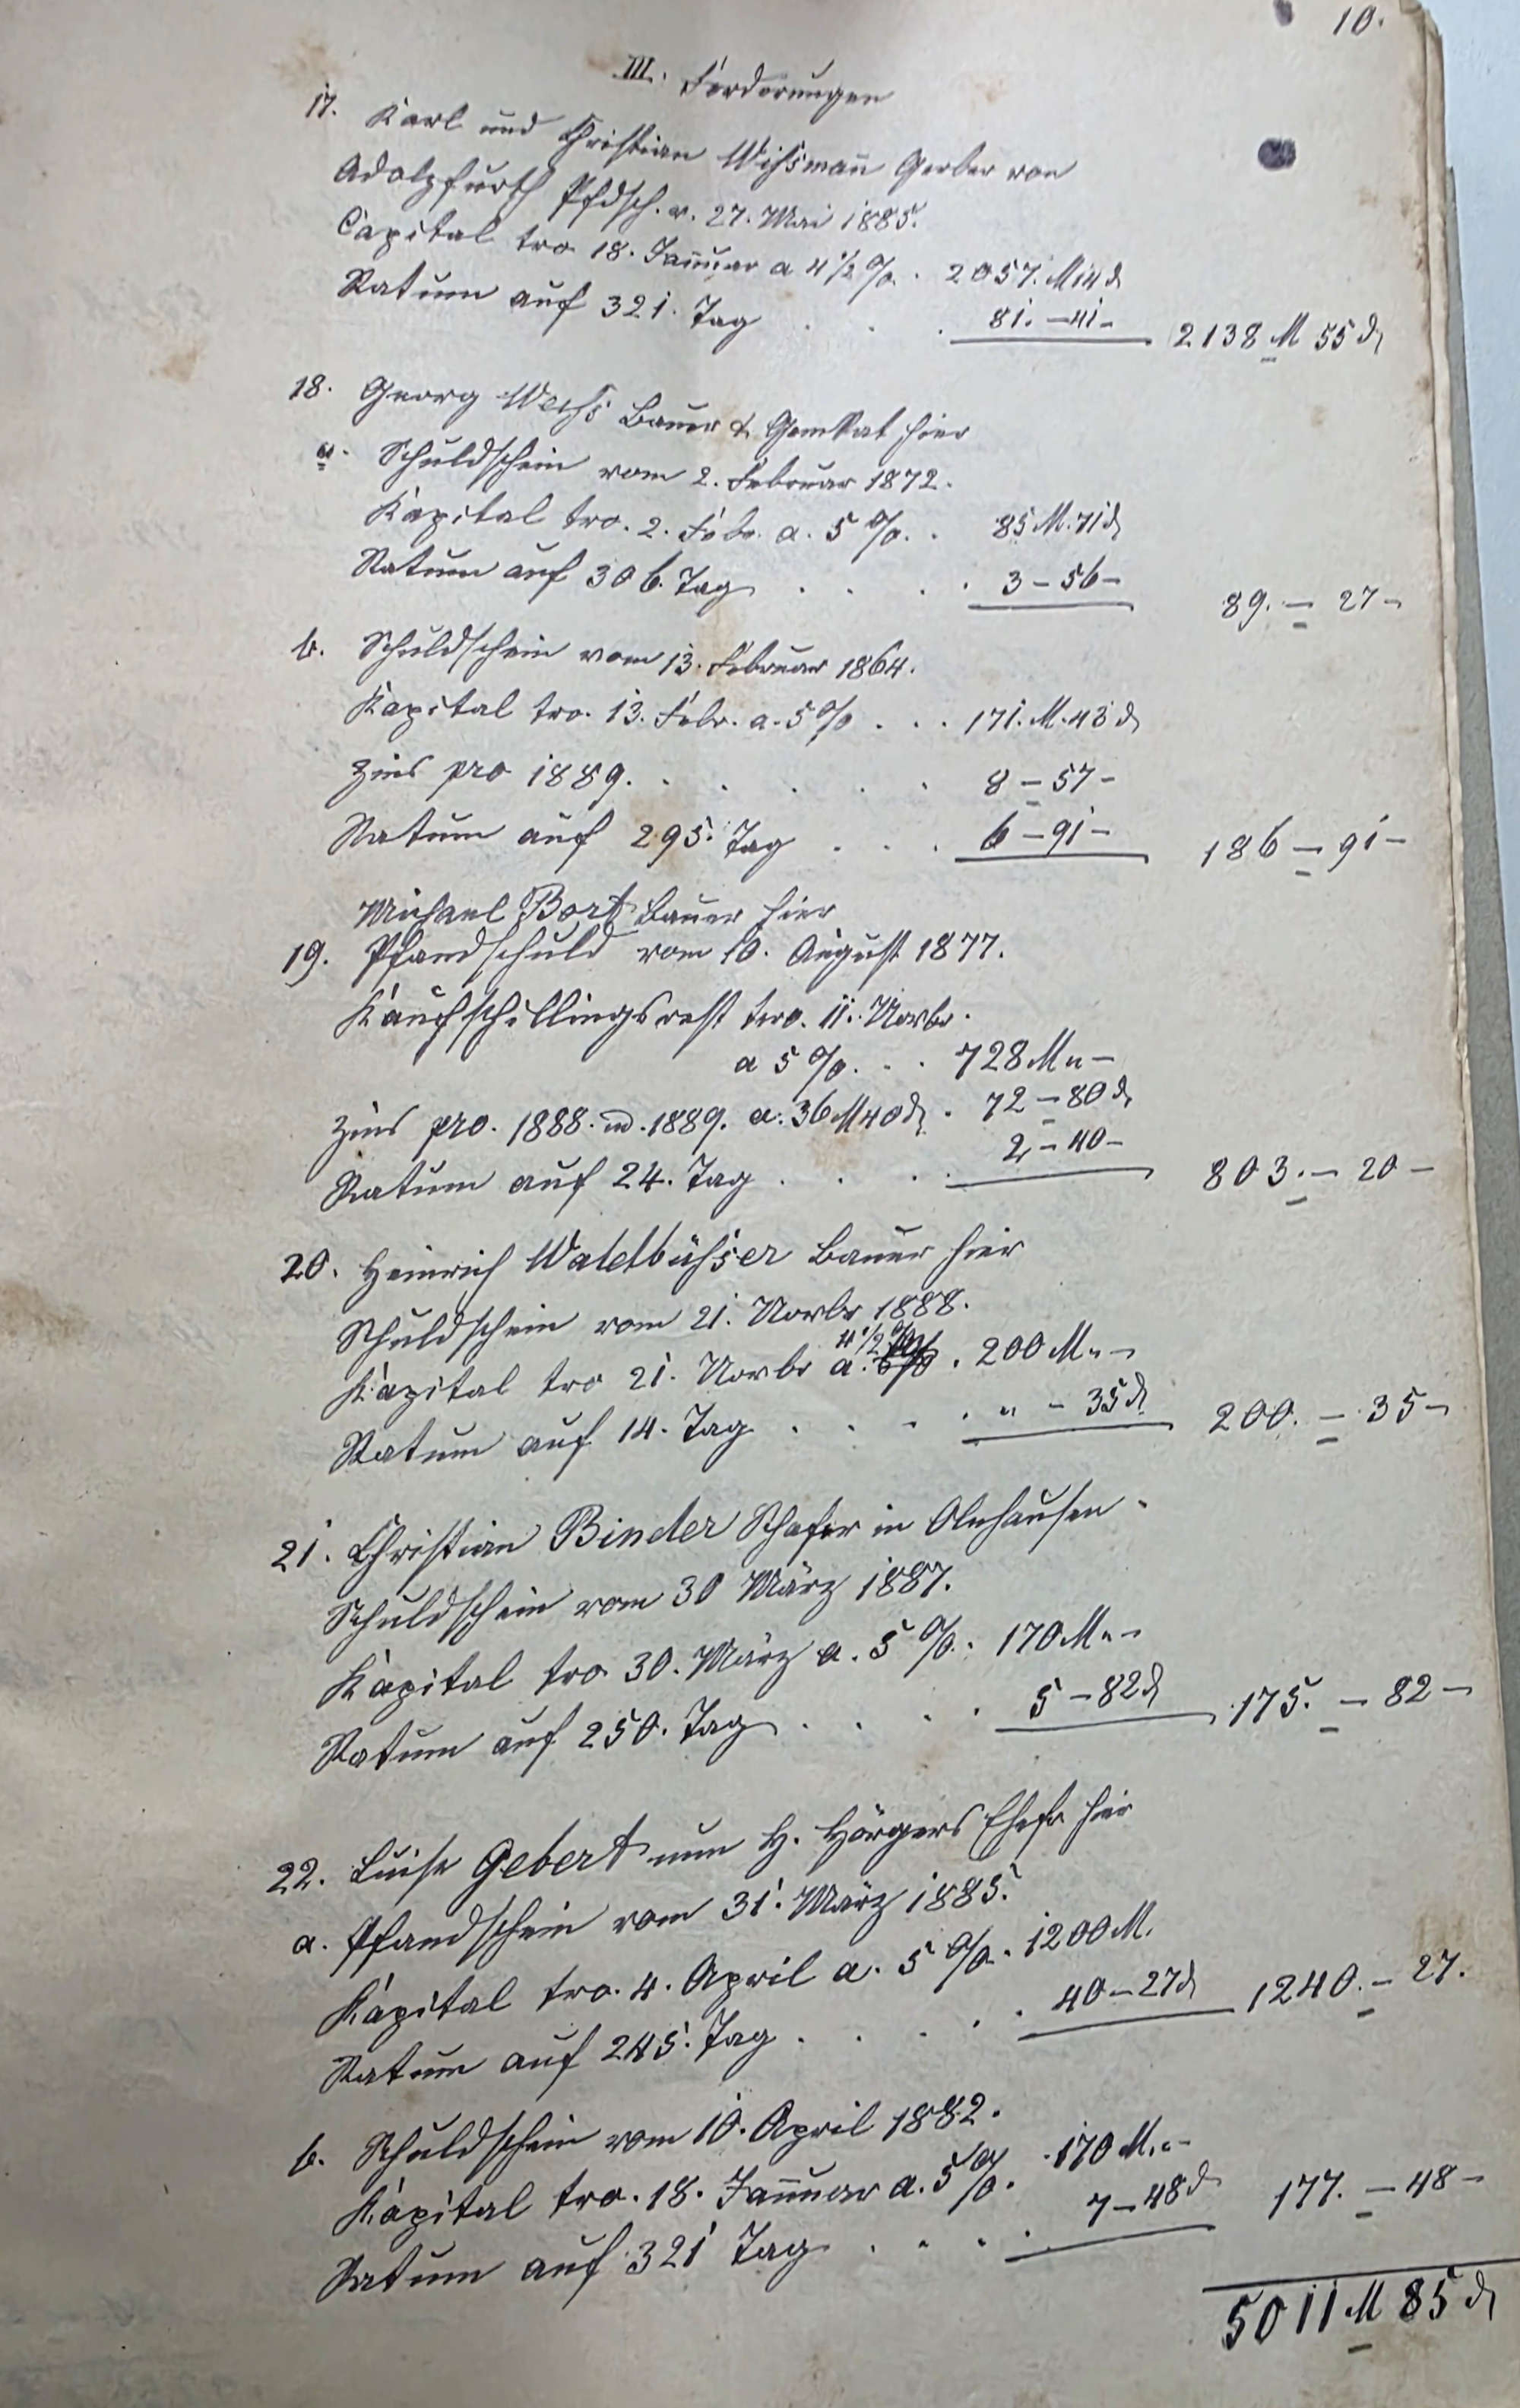 10.
III. Forderungen
17. Karl und Christian Wißmañ Gerber von
Adolzfurth Pfdsch. v. 27. Mai 1885.
Capital tro 18. Jañuar a 4 1/2 %. . 2057. M 14 ₰
Ratum auf 321. Tag . . . 81. – 41 – 2138 M 55 ₰
18. Georg Weiß Bauer & GemRat hier
a. Schuldschein vom 2. Februar 1872.
Kapital tro. 2. Febr. a. 5 %. . 85 M. 71 ₰
Ratum auf 306. Tag . . . . 3 – 56 – 89. – 27 –
b. Schuldschein vom 13. Februar 1864.
Kapital tro. 13. Febr. a. 5 % . . . 171. M. 43 ₰
Zins pro 1889. . . . . . 8 – 57 –
Ratum auf 295. Tag . . . 6 – 91 – 186 – 91 –
Michael Bort Bauer hier
19. Pfandschuld vom 10. August 1877.
Kaufschillingsrest tro. 11. Novbr.
a 5 %. . . 728 M „ –
Zins pro. 1888. u. 1889. a. 36 M 40 ₰ . 72 – 80 ₰
Ratum auf 24. Tag . . . . 2 – 40 – 803. – 20 –
20. Heinrich Waldbüßer Bauer hier
Schuldschein vom 21. Novbr 1888.
Kapital tro 21. Novbr a. 4 1/2 % . 200 M „ –
Ratum auf 14. Tag . . . . „ – 35 ₰ 200. – 35 –
21. Christian Binder Schafer in Olnhausen.
Schuldschein vom 30 März 1887.
Kapital tro 30. März a. 5 %. . 170 M „ –
Ratum auf 250. Tag . . . . 5 – 82 ₰ 175. – 82 –
22. Luise Gebert nun H. Hörgers Ehefr hier
a. Pfandschein vom 31. März 1885.
Kapital tro. 4. April a. 5 %. 1200 M.
Ratum auf 245. Tag . . . . . 40 – 27 ₰ 1240. – 27.
b. Schuldschein vom 10. April 1882.
Kapital tro. 18. Jañuar a. 5 %. . 170 M. „ –
Ratum auf 321 Tag . . . . 7 – 48 ₰ 177. – 48 –
5011 M 85 ₰